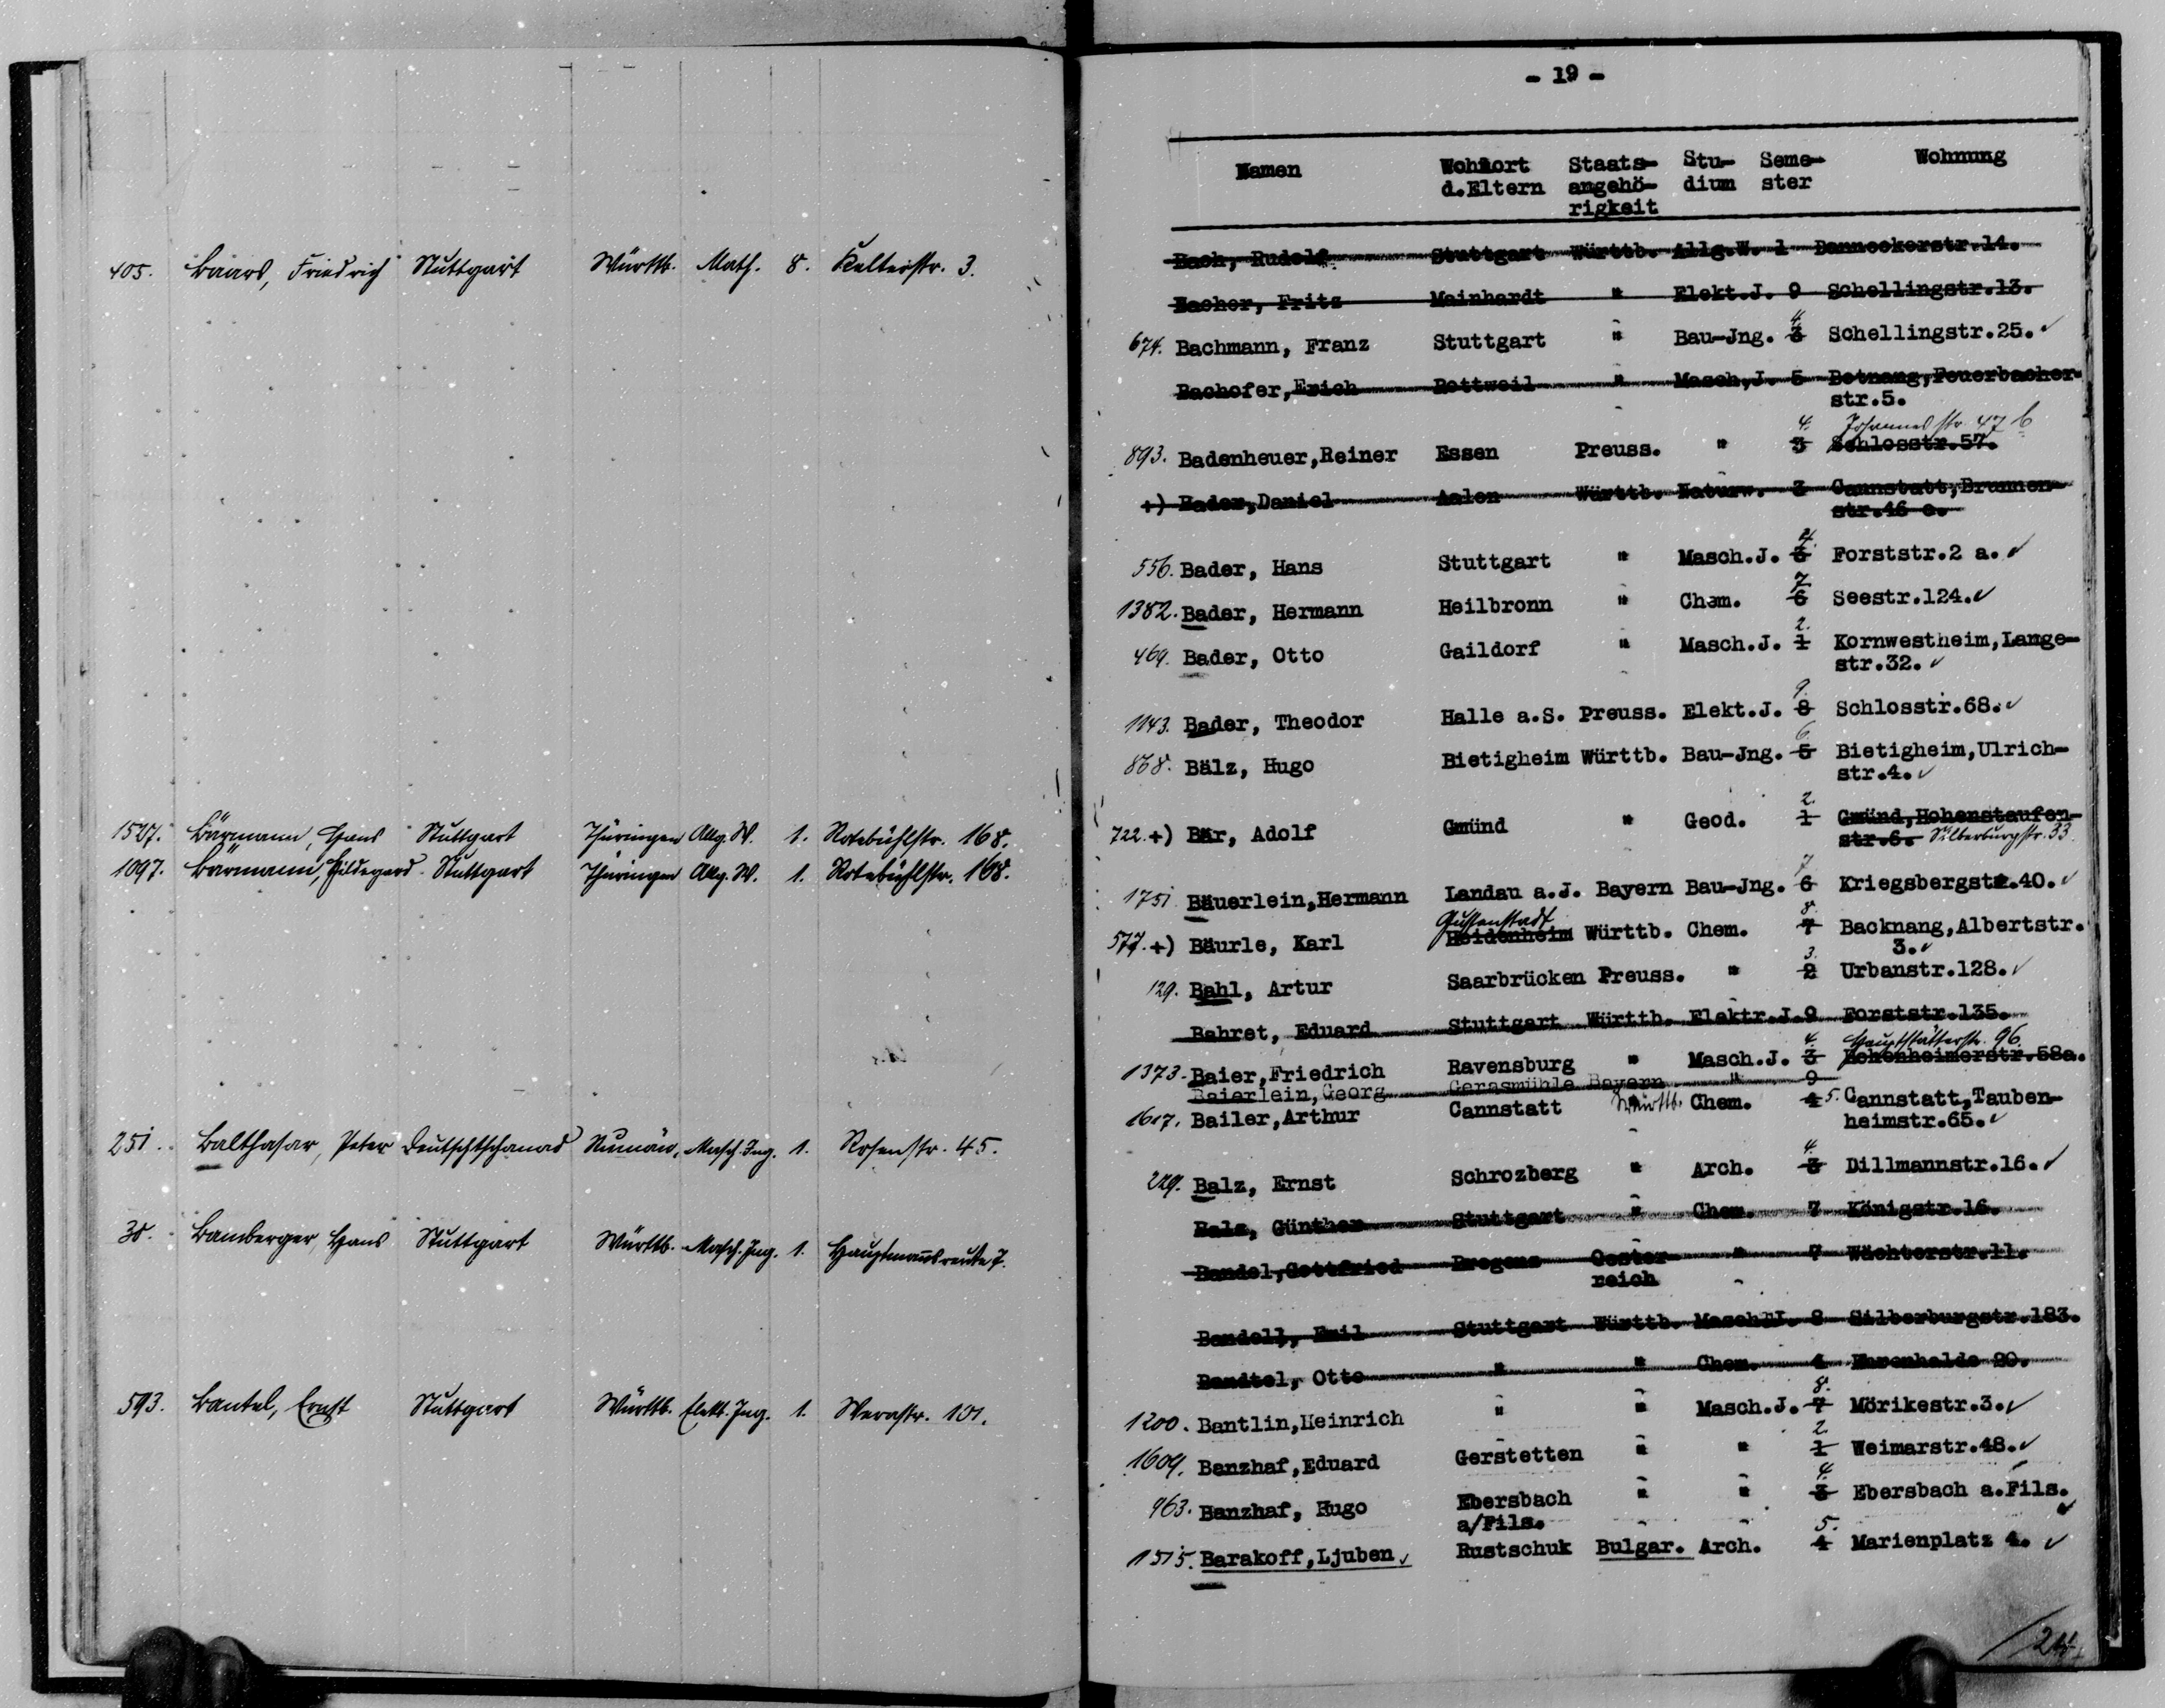 405. Baars, Friedrich Stuttgart Württb. Math. 8. Kelterstr. 3.
1527. Bärmann, Hans Stuttgart Thüringen Allg. W. 1. Rotebühlstr. 168.
1097. Bärmann, Hildegard Stuttgart Thüringen Allg. W. 1. Rotebühlstr. 168.
251. Balthasar, Peter Deutschtschanad Rumän. Masch. Ing. 1. Rosenstr. 45.
30. Bamberger, Hans Stuttgart Württb. Masch. Ing. 1. Hauptmannsreute 7.
593. Bantel, Ernst Stuttgart Württb. Elekt. Ing. 1. Werastr. 101.
- 19 -
Namen Wohnort Staats- Stu- Seme- Wohnung
d.Eltern angehö- dium ster
rigkeit
Bach, Rudolf Stuttgart Württb. Allg.W. 1 Danneckerstr.14.
Bacher, Fritz Mainhardt " Elekt.J. 9 Schellingstr.13.
4.
674. Bachmann, Franz Stuttgart " Bau-Jng. 3 Schellingstr.25. ✓
Bachofer,Erich Rottweil " Masch,J. 5 Botnang,Feuerbacher-
str.5.
4. Johannesstr. 47 b
893. Badenheuer,Reiner Essen Preuss. " 3 Schlosstr.57.
+) Bader,Daniel Aalen Württb. Naturw. 3 Cannstatt,Brunnen-
str.46 c.
4.
556. Bader, Hans Stuttgart " Masch.J. 3 Forststr.2 a. ✓
7
1382. Bader, Hermann Heilbronn " Chem. 6 Seestr.124. ✓
2.
469. Bader, Otto Gaildorf " Masch.J. 1 Kornwestheim,Lange-
str.32. ✓
9.
1143. Bader, Theodor Halle a.S. Preuss. Elekt.J. 8 Schlosstr.68. ✓
6.
868. Bälz, Hugo Bietigheim Württb. Bau-Jng. 5 Bietigheim,Ulrich-
str.4. ✓
2.
722. +) Bär, Adolf Gmünd " Geod. 1 Gmünd,Hohenstaufen-
str.6. Silberburgstr. 33.
7
1751 Bäuerlein,Hermann Landau a.J. Bayern Bau-Jng. 6 Kriegsbergstr.40. ✓
Gussenstadt 8.
577. +) Bäurle, Karl Heidenheim Württb. Chem. 7 Backnang,Albertstr.
3. ✓
3.
129. Bahl, Artur Saarbrücken Preuss. " 2 Urbanstr.128. ✓
Bahret, Eduard Stuttgart Württb. Elektr.J.9 Forststr.135.
4. Hauptstätterstr. 96.
1373. Baier,Friedrich Ravensburg " Masch.J. 3 Hohenheimerstr.58a.
Baierlein,Georg Gerasmühle Bayern " 9
1617. Bailer,Arthur Cannstatt Württb. Chem. 4 5. Cannstatt,Tauben-
heimstr.65. ✓
4.
229. Balz, Ernst Schrozberg " Arch. 3 Dillmannstr.16. ✓
Balz, Günther Stuttgart " Chem. 7 Königstr.16.
Bandel,Gottfried Bregenz Oester- " 7 Wächterstr.11.
reich
Bandell, Emil Stuttgart Württb. Masch.J. 8 Silberburgstr.183.
Banitel, Otto " " Chem. 4 Ehrenhalde 20.
8.
1200. Bantlin,Heinrich " " Masch.J. 7 Mörikestr.3. ✓
2.
1609. Banzhaf,Eduard Gerstetten " " 1 Weimarstr.48. ✓
4.
963. Banzhaf, Hugo Ebersbach " " 3 Ebersbach a.Fils.
a/Fils. ✓
5.
1515. Barakoff,Ljuben ✓ Rustschuk Bulgar. Arch. 4 Marienplatz 4. ✓